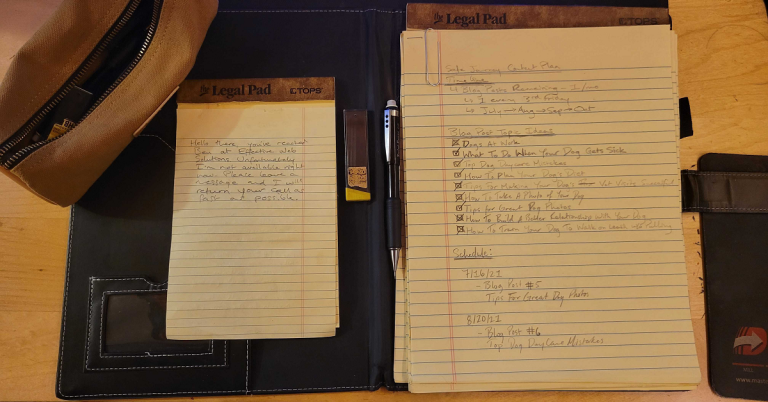 The Legal Pad TOPS
Hello there, you've reached
Ben at Effective Web
Solutions. Unfortunately
I'm not available right
now. Please leave a
message and I will
return your call as
fast as possible.
The Legal Pad TOPS
Journey Content Plan
Blog Posts Remaining
1 every 3rd Friday
July → Aug → Sep → Oct
Blog Post Topic Ideas
Dogs At Work
What To Do When Your Dog Gets Sick
Top Dog Mistakes
How To Plan Your Dog's Diet
Tips For Making Your Dog's Vet Visits Successful
How To Take A Photo of Your Dog
Tips for Great Dog Photos
How To Build A Better Relationship With Your Dog
How To Train Your Dog To Walk on Leash w/o Pulling
Schedule:
7/16/21
- Blog Post #5
Tips For Great Dog Photos
8/20/21
- Blog Post #6
Top Dog Daycare Mistakes